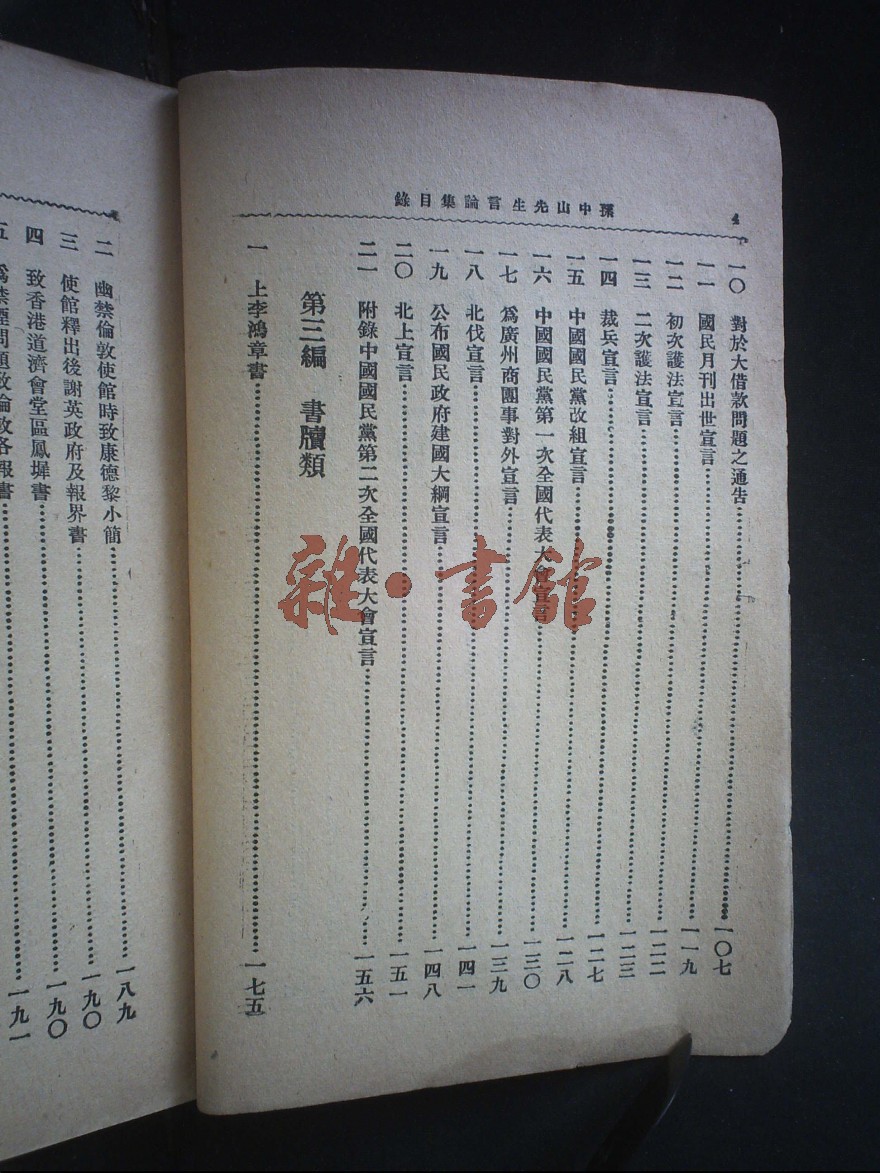 四
孫中山先生言論集目錄
一〇 對於大借款問題之通告……一〇七
一一 國民月刊出世宣言……一一九
一二 初次護法宣言……一二二
一三 二次護法宣言……一二三
一四 裁兵宣言……一二七
一五 中國國民黨改組宣言……一二八
一六 中國國民黨第一次全國代表大會宣言……一三〇
一七 爲廣州商團事對外宣言……一三九
一八 北伐宣言……一四一
一九 公布國民政府建國大綱宣言……一四八
二〇 北上宣言……一五一
二一 附錄中國國民黨第二次全國代表大會宣言……一五六
第三編 書牘類
一 上李鴻章書……一七五
二 幽禁倫敦使館時致康德黎小簡……一八九
三 使館釋出後謝英政府及報界書……一九〇
四 致香港道濟會堂區鳳墀書……一九〇
五 爲禁煙問題致倫敦各報書……一九一
雜·書館